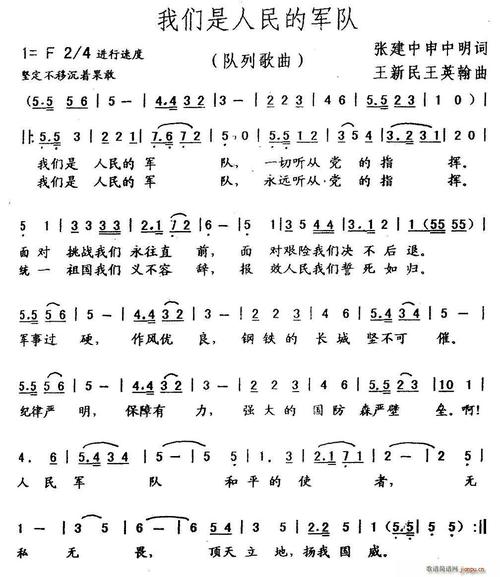 我们是人民的军队
1= F 2/4 进行速度
（队列歌曲）
张建中申中明词
坚定不移沉着果敢
王新民王英翰曲
(5.5 5 6 | 5 - | 4.4 3 2 | 3 - | 2 2 3 | 4 5 6 | 5.5 2 3 | 1 0 )
‖: 5.5 3 | 2 2 1 | 7.6 7 2 | 5 0 | 5.5 1 | 2 5 1 2 | 3.2 3 1 | 2 0 |
我们是 人民的 军 队， 一切听从 党 的 指 挥。
我们是 人民的 军 队， 永远听从 党 的 指 挥。
5 1 | 3 3 3 3 | 2.1 7 2 | 6 - | 5 1 | 3 5 4 5 | 3 . 1 2 | 1 (5 5 5 5) |
面 对 挑战我们 永往直 前，面 对艰险我们决 不 后 退。
统 一 祖国我们 义不容 辞，报 效人民我们誓 死 如 归。
5.5 5 6 | 5 - | 4.4 3 2 | 3 - | 2 2 3 | 4 5 6 | 5.5 2 3 | 2 - |
军事过 硬， 作风优 良， 钢铁的 长城 坚不可 催。
5.5 5 6 | 5 - | 4.4 3 2 | 3 - | 2 2 3 | 4 5 6 | 5.5 2 3 | 1 0 1 |
纪律严 明， 保障有 力， 强大的 国防 森严壁 垒。啊！
4 . 6 | 5.4 3 4 | 5 - | 5 5 | 3 . 3 | 2.1 7 1 | 5 - | 5 5 |
人 民 军 队 和平的 使 者， 无
1 - | 3 - | 5 - | 5 - | 6 6 5 | 4 6 | 5 5 2 3 | 1 - | 1 (5.5 | 5 5 :‖
私 无 畏， 顶天立 地，扬我国 威。
歌谱简谱网
jianpu.cn